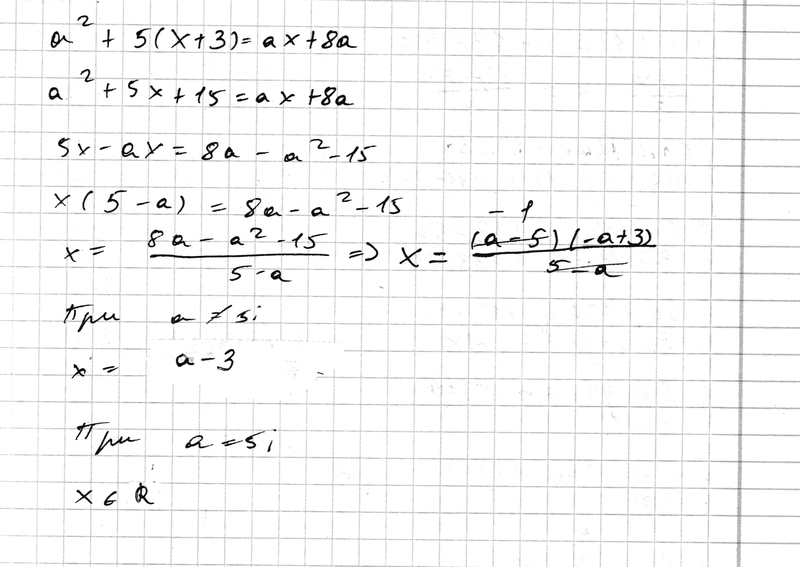 a² + 5(x+3) = ax+8a
a² + 5x + 15 = ax + 8a
5x - ax = 8a - a² - 15
x(5 - a) = 8a - a² - 15
x = (8a - a² - 15)/(5-a) => x = ((a-5)(-a+3))/(5-a) -1
При a ≠ 5;
x = a - 3
При a = 5;
x ∈ R